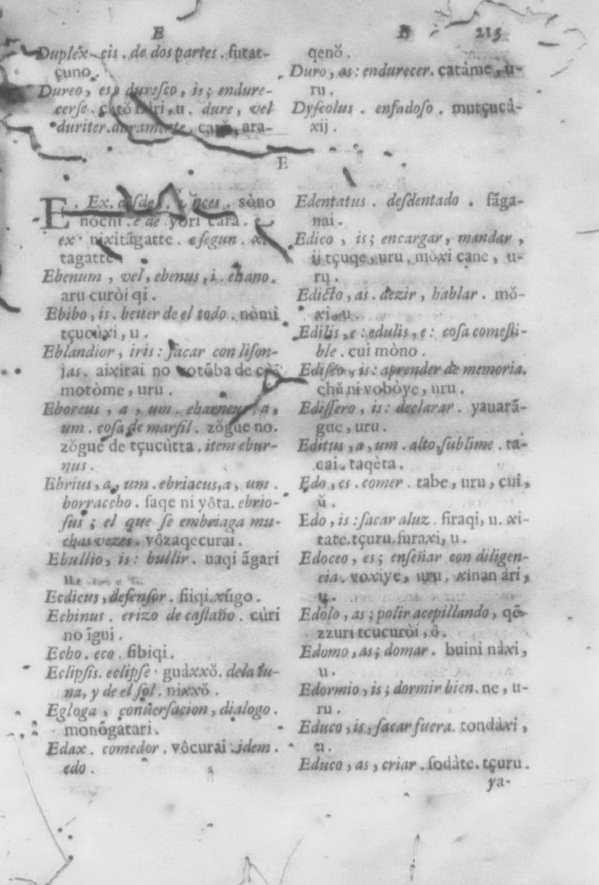 E
Duplex cis. de dos partes. futat-
çuno.
Dureo, es, duresco, is; endure-
cerse. dure, vel
duriter. duramente, ara-
B 215
qenŏ.
Duro, as: endurecer. catáme, u-
ru.
Dyscolus. enfadoso. mutçucâ-
xij.
E
E. Ex. desde. sòno
nochi. e de yori cara.
ex. nixitāgatte. e segun. xi
tagatte.
Ebenum, vel, ebenus, i. ebano.
aru curòi qi.
Ebibo, is. beuer de el todo. nòmi
tçucùxi, u.
Eblandior, iris: sacar con lison-
jas. aixirai no cotòba de còi
motòme, uru.
Eboreus, a, um. eburneus, a,
um. cosa de marfil. zŏgue no.
zŏgue de tçucùtta. item ebur-
nus.
Ebrius, a, um. ebriacus, a, um.
borracho. saqe ni yôta. ebrio-
sus; el que se embriaga mu-
chas vezes. vôzaqecurai.
Ebullio, is: bullir. uaqi āgari
Ecdicus, defensor. fiiqi xùgo.
Echinus. erizo de castaño. cúri
no īgui.
Echo. eco. fibiqi.
Eclipsis. eclipse. guáxxŏ. de la lu-
na, y de el sol. nixxŏ.
Egloga, conuersacion, dialogo.
monōgatari.
Edax. comedor. vôcurai. idem.
edo.
Edentatus. desdentado. fāga-
nai.
Edico, is; encargar, mandar,
ij tçuqe, uru. mŏxi cane, u-
ru.
Edicto, as. dezir, hablar. mŏ-
xi, u.
Edilis, e: edulis, e: cosa comesti-
ble. cui mòno.
Edisco, is: aprender de memoria.
chŭ ni vobòye, uru.
Edissero, is: declarar. yauarā-
gue, uru.
Editus, a, um. alto, sublime. ta-
cai. taqèta.
Edo, es. comer. tabe, uru, cui,
ŭ.
Edo, is: sacar a luz. firaqi, u. xi-
tate. tçuru. furaxi, u.
Edoceo, es; enseñar con diligen-
cia. voxiye, uru. xinan ári,
u.
Edolo, as; polir acepillando, qē-
zzuri tçucuròi, ô.
Edomo, as; domar. buini nàxi,
u.
Edormio, is; dormir bien. ne, u-
ru.
Educo, is, sacar fuera. tondàxi,
u.
Educo, as, criar. sodàte. tçuru.
ya-